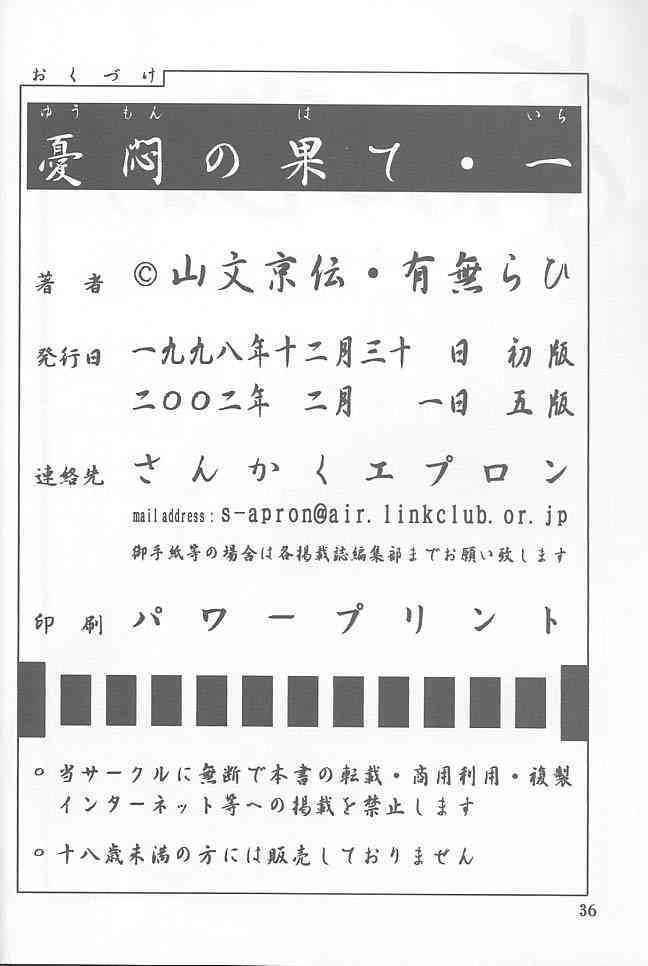 おくづけ
ゆうもん は いち
憂悶の果て・一
著者 ©山文京伝・有無らひ
発行日 一九九八年十二月三十日 初版
二〇〇二年 二月 一日 五版
連絡先 さんかくエプロン
mail address : s-apron@air.linkclub.or.jp
御手紙等の場合は各掲載誌編集部までお願い致します
印刷 パワープリント
○ 当サークルに無断で本書の転載・商用利用・複製
インターネット等への掲載を禁止します
○ 十八歳未満の方には販売しておりません
36